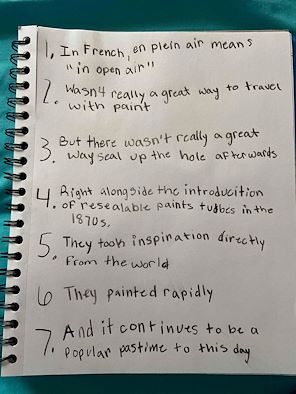 1. In French, en plein air means
"in open air"
2. Wasn't really a great way to travel
with paint
3. But there wasn't really a great
way seal up the hole afterwards
4. Right alongside the introducition
of resealable paints tudbes in the
1870s.
5. They took inspiration directly
from the world
6 They painted rapidly
7. And it continues to be a
popular pastime to this day